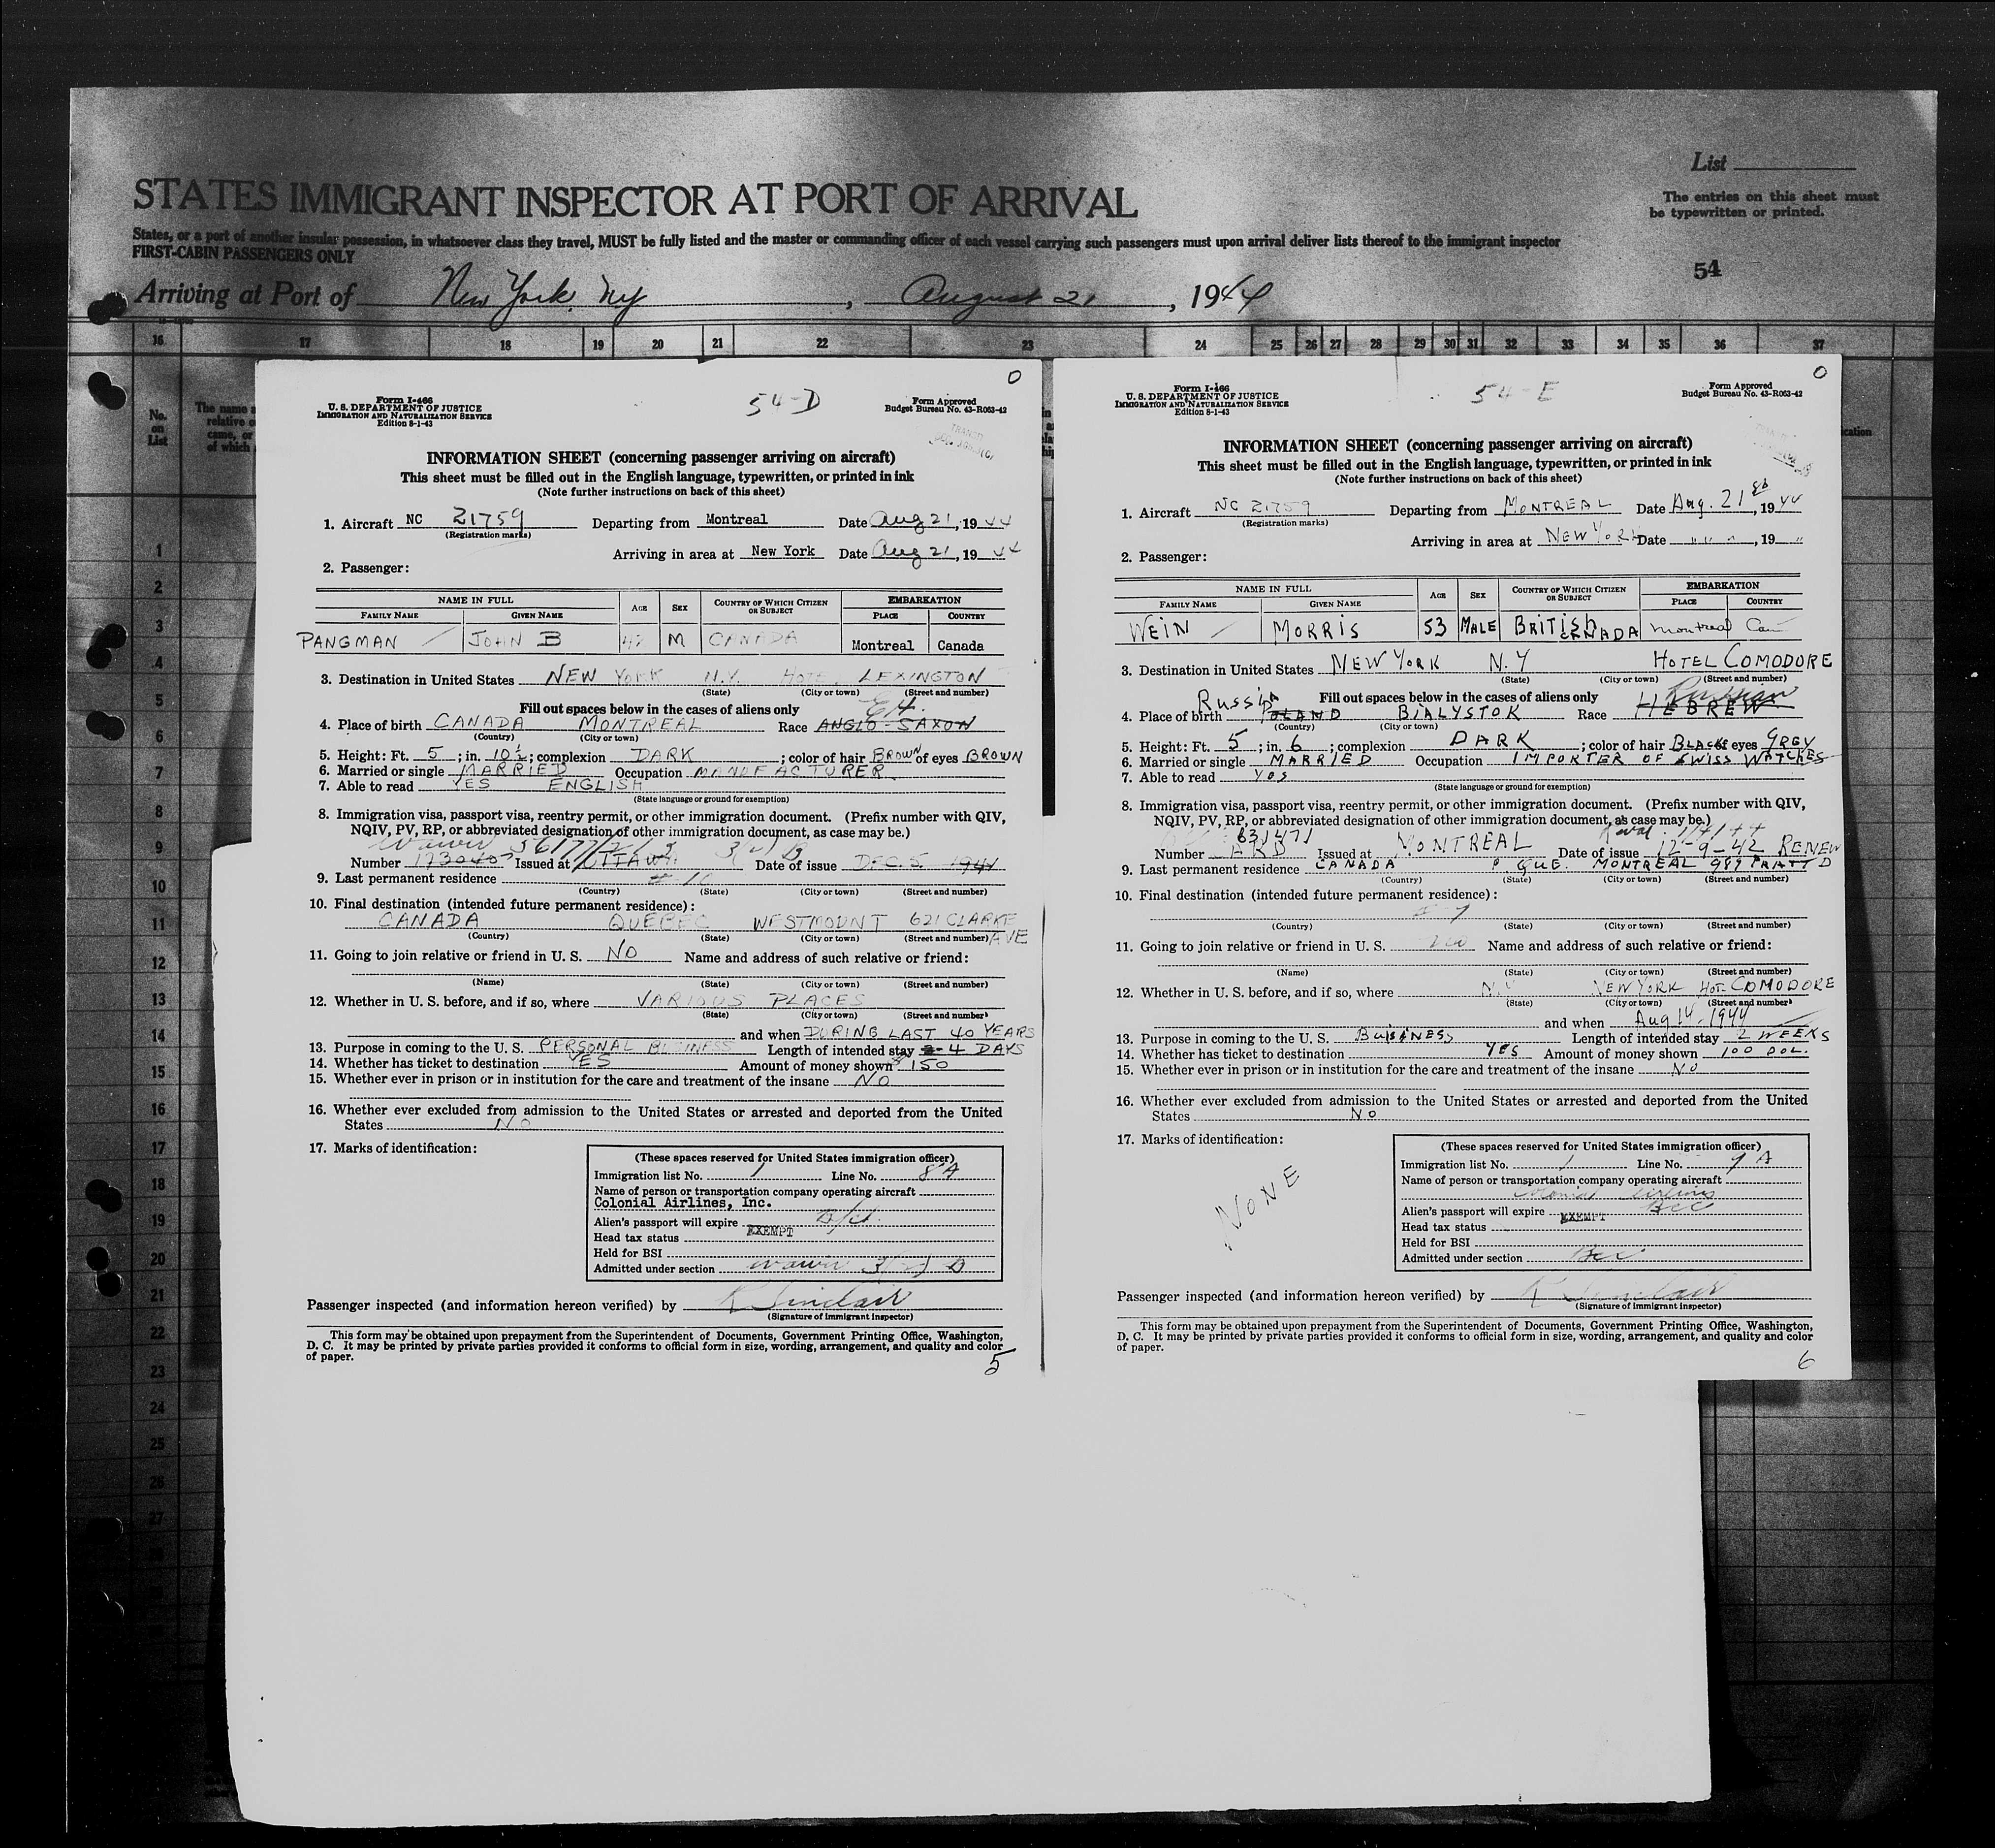 List
STATES IMMIGRANT INSPECTOR AT PORT OF ARRIVAL
The entries on this sheet must
be typewritten or printed.
States, or a port of another insular possession, in whatsoever class they travel, MUST be fully listed and the master or commanding officer of each vessel carrying such passengers must upon arrival deliver lists thereof to the immigrant inspector
FIRST-CABIN PASSENGERS ONLY
54
Arriving at Port of New York, NY, August 21, 1944
16 17 18 19 20 21 22 23 24 25 26 27 28 29 30 31 32 33 34 35 36 37
No.
on
List
The name a
relative o
came, or
of which
1
2
3
4
5
6
7
8
9
10
11
12
13
14
15
16
17
18
19
20
21
22
23
24
25
26
27
0
Form I-466
U. S. DEPARTMENT OF JUSTICE
IMMIGRATION AND NATURALIZATION SERVICE
Edition 8-1-43
54-D
Form Approved
Budget Bureau No. 43-R063-42
INFORMATION SHEET (concerning passenger arriving on aircraft)
This sheet must be filled out in the English language, typewritten, or printed in ink
(Note further instructions on back of this sheet)
1. Aircraft NC 21759 Departing from Montreal Date Aug 21, 1944
(Registration marks)
Arriving in area at New York Date Aug 21, 1944
2. Passenger:
NAME IN FULL AGE SEX COUNTRY OF WHICH CITIZEN OR SUBJECT EMBARKATION
FAMILY NAME GIVEN NAME PLACE COUNTRY
PANGMAN JOHN B 42 M CANADA Montreal Canada
3. Destination in United States NEW YORK N.Y. HOTEL LEXINGTON
(State) (City or town) (Street and number)
Fill out spaces below in the cases of aliens only
4. Place of birth CANADA MONTREAL Race ANGLO-SAXON
(Country) (City or town)
5. Height: Ft. 5; in. 10½; complexion DARK; color of hair BROWN of eyes BROWN
6. Married or single MARRIED Occupation MANUFACTURER
7. Able to read YES ENGLISH
(State language or ground for exemption)
8. Immigration visa, passport visa, reentry permit, or other immigration document. (Prefix number with QIV,
NQIV, PV, RP, or abbreviated designation of other immigration document, as case may be.)
Number Issued at OTTAWA Date of issue DEC. 5 1941
9. Last permanent residence
(Country) (State) (City or town) (Street and number)
10. Final destination (intended future permanent residence):
CANADA QUEBEC WESTMOUNT 621 CLARKE AVE
(Country) (State) (City or town) (Street and number)
11. Going to join relative or friend in U. S. NO Name and address of such relative or friend:
(Name) (State) (City or town) (Street and number)
12. Whether in U. S. before, and if so, where VARIOUS PLACES
(State) (City or town) (Street and number)
and when DURING LAST 40 YEARS
13. Purpose in coming to the U. S. PERSONAL BUSINESS Length of intended stay 4 DAYS
14. Whether has ticket to destination YES Amount of money shown $150
15. Whether ever in prison or in institution for the care and treatment of the insane NO
16. Whether ever excluded from admission to the United States or arrested and deported from the United
States NO
17. Marks of identification:
(These spaces reserved for United States immigration officer)
Immigration list No. 1 Line No. 8 A
Name of person or transportation company operating aircraft
Colonial Airlines, Inc.
Alien's passport will expire
Head tax status EXEMPT
Held for BSI
Admitted under section
Passenger inspected (and information hereon verified) by R Sinclair
(Signature of Immigrant Inspector)
This form may be obtained upon prepayment from the Superintendent of Documents, Government Printing Office, Washington,
D. C. It may be printed by private parties provided it conforms to official form in size, wording, arrangement, and quality and color
of paper.
5
0
Form I-466
U. S. DEPARTMENT OF JUSTICE
IMMIGRATION AND NATURALIZATION SERVICE
Edition 8-1-43
54-E
Form Approved
Budget Bureau No. 43-R063-42
INFORMATION SHEET (concerning passenger arriving on aircraft)
This sheet must be filled out in the English language, typewritten, or printed in ink
(Note further instructions on back of this sheet)
1. Aircraft NC 21759 Departing from MONTREAL Date Aug. 21, 1944
(Registration marks)
Arriving in area at NEW YORK Date " " ", 19 "
2. Passenger:
NAME IN FULL AGE SEX COUNTRY OF WHICH CITIZEN OR SUBJECT EMBARKATION
FAMILY NAME GIVEN NAME PLACE COUNTRY
WEIN MORRIS 53 MALE BRITISH CANADA Montreal Can
3. Destination in United States NEW YORK N.Y HOTEL COMODORE
(State) (City or town) (Street and number)
Fill out spaces below in the cases of aliens only
4. Place of birth Russia POLAND BIALYSTOK Race HEBREW Russian
(Country) (City or town)
5. Height: Ft. 5; in. 6; complexion DARK; color of hair BLACK eyes GREY
6. Married or single MARRIED Occupation IMPORTER OF SWISS WATCHES
7. Able to read YES
(State language or ground for exemption)
8. Immigration visa, passport visa, reentry permit, or other immigration document. (Prefix number with QIV,
NQIV, PV, RP, or abbreviated designation of other immigration document, as case may be.)
Number 631471 Issued at MONTREAL Date of issue 12-9-42 RENEW
9. Last permanent residence CANADA P. QUE. MONTREAL 989 PRATT D
(Country) (State) (City or town) (Street and number)
10. Final destination (intended future permanent residence):
(Country) (State) (City or town) (Street and number)
11. Going to join relative or friend in U. S. no Name and address of such relative or friend:
(Name) (State) (City or town) (Street and number)
12. Whether in U. S. before, and if so, where N.Y NEW YORK HOT. COMODORE
(State) (City or town) (Street and number)
and when Aug 14, 1944
13. Purpose in coming to the U. S. BUISINESS Length of intended stay 2 WEEKS
14. Whether has ticket to destination YES Amount of money shown 100 DOL.
15. Whether ever in prison or in institution for the care and treatment of the insane NO
16. Whether ever excluded from admission to the United States or arrested and deported from the United
States NO
17. Marks of identification:
NONE
(These spaces reserved for United States immigration officer)
Immigration list No. 1 Line No. 7 A
Name of person or transportation company operating aircraft
Colonial Airlines
Alien's passport will expire BCC
Head tax status EXEMPT
Held for BSI
Admitted under section BCC
Passenger inspected (and information hereon verified) by R Sinclair
(Signature of Immigrant Inspector)
This form may be obtained upon prepayment from the Superintendent of Documents, Government Printing Office, Washington,
D. C. It may be printed by private parties provided it conforms to official form in size, wording, arrangement, and quality and color
of paper.
6